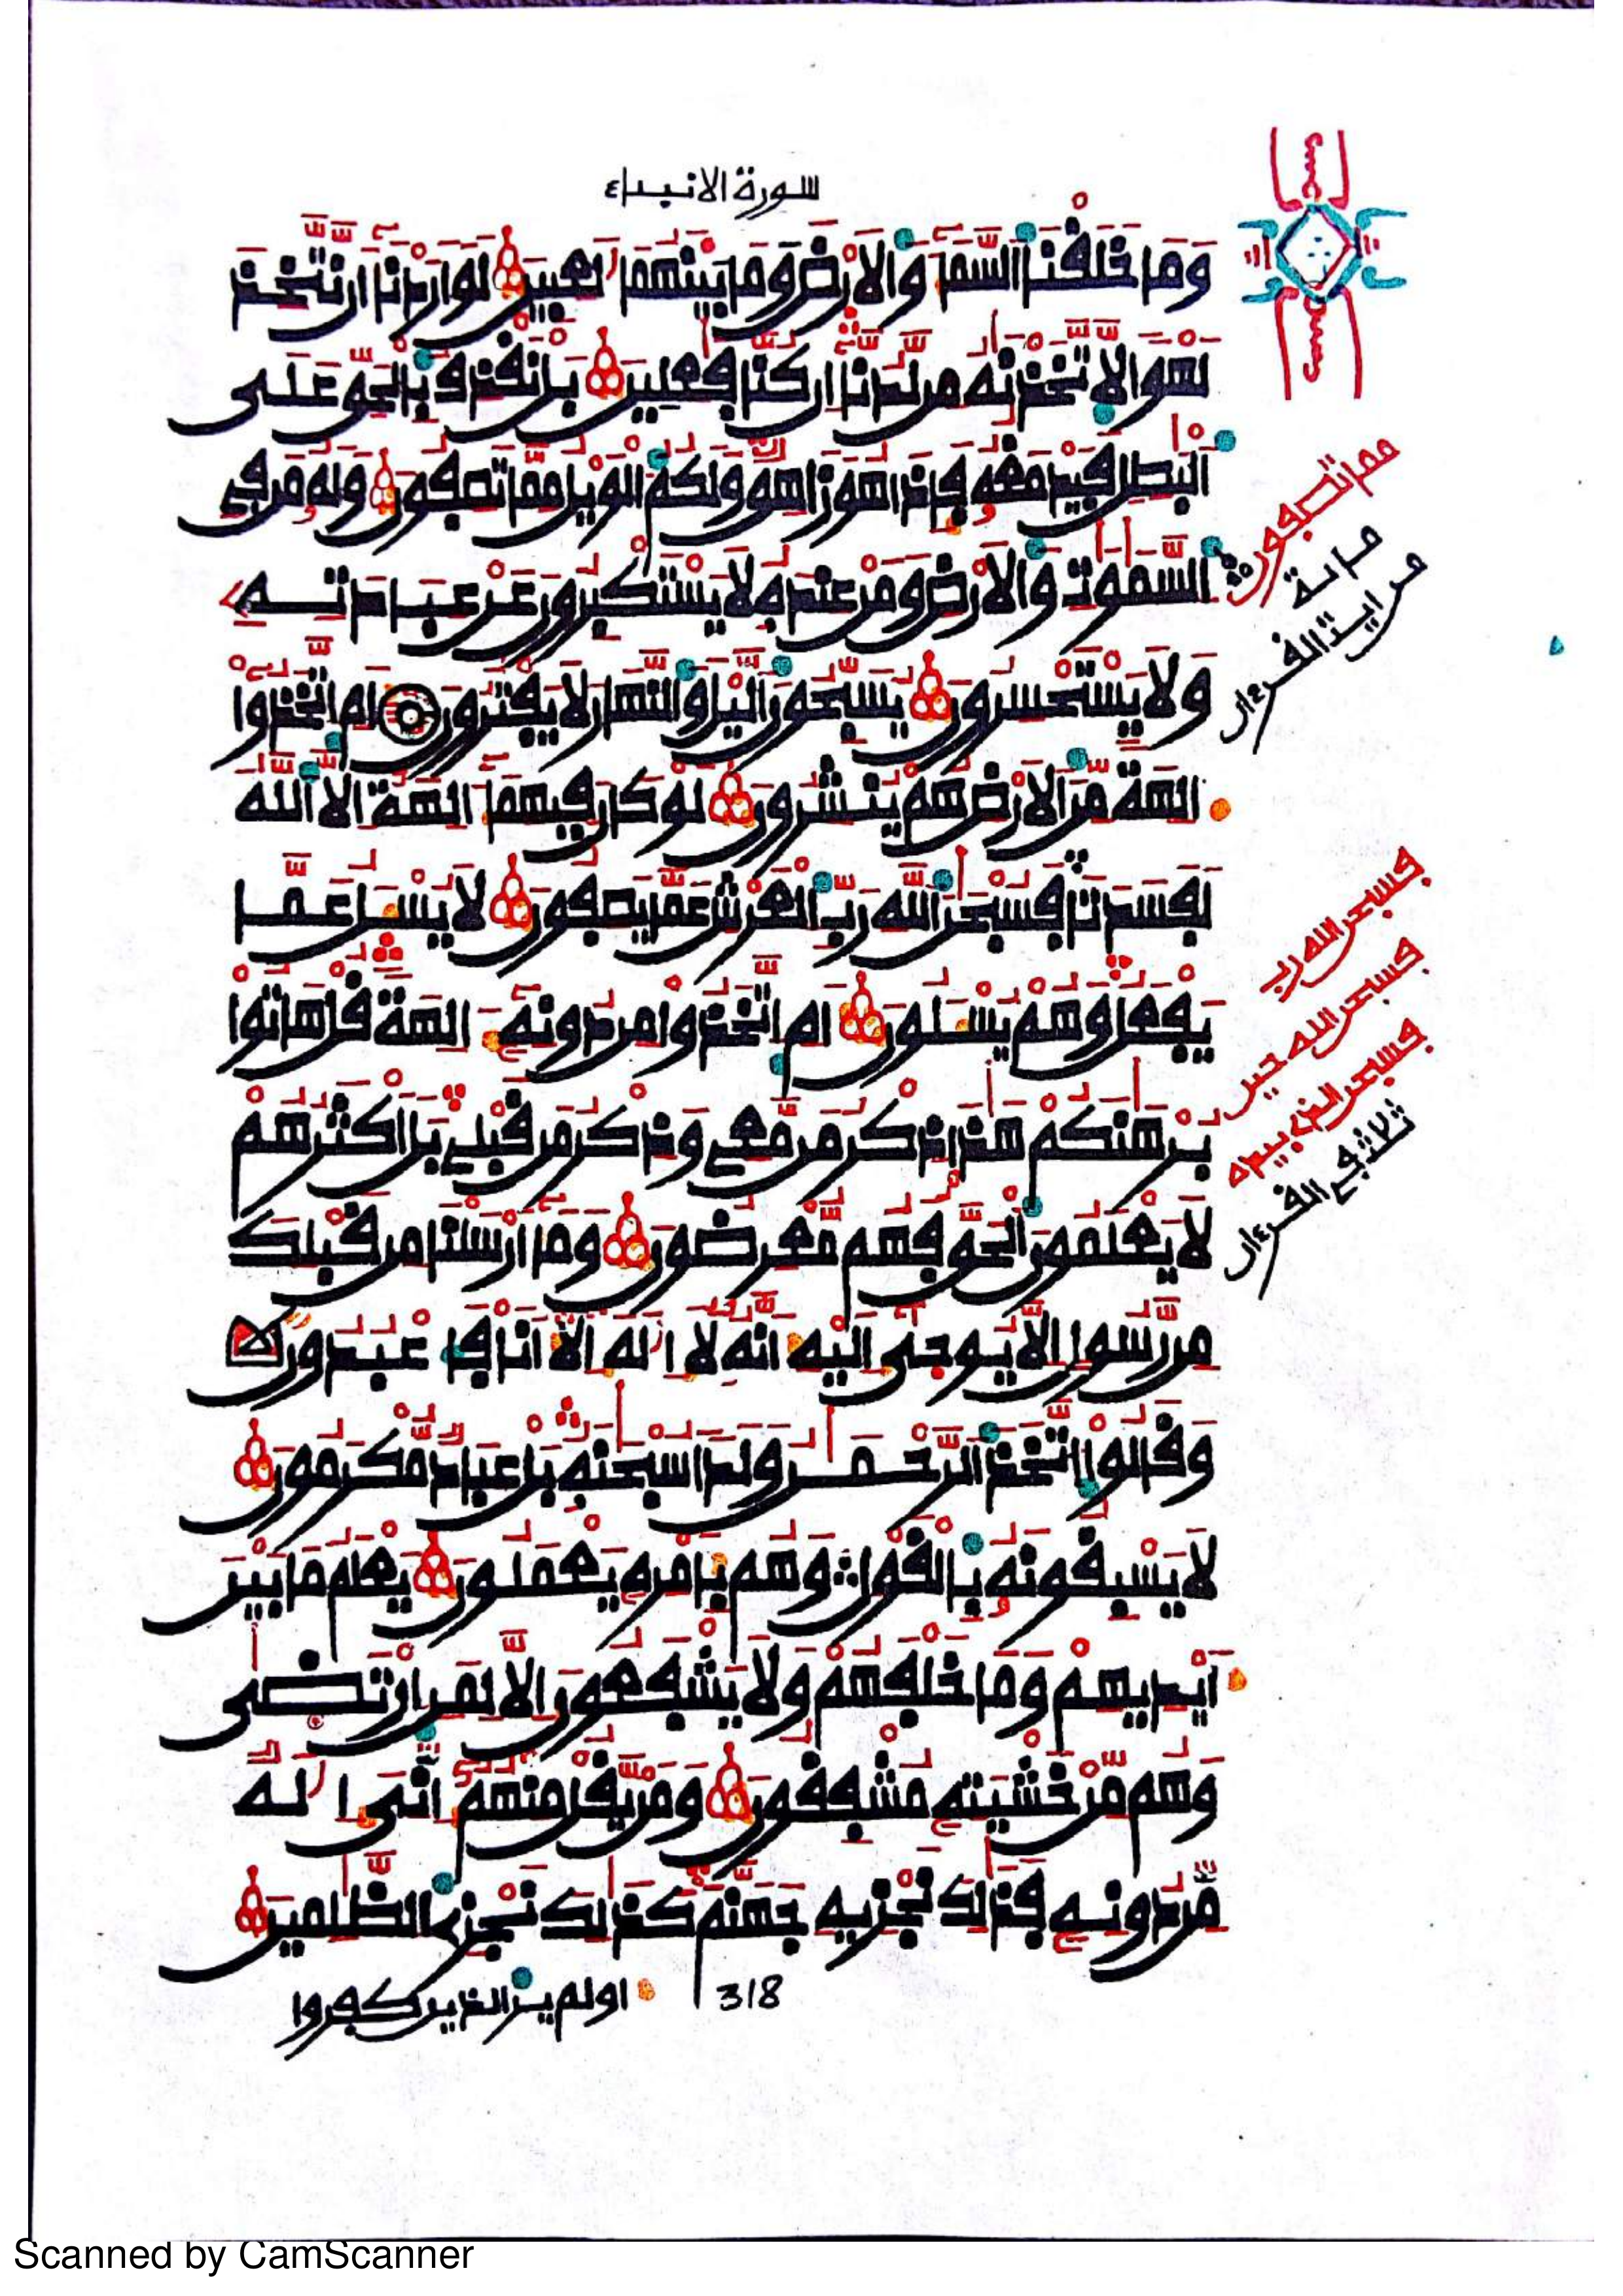 سورة الانبياء
وَمَا خَلَقْنَا السَّمَآءَ وَالَارْضَ وَمَا بَيْنَهُمَا لَٰعِبِينَ لَوَ ارَدْنَآ أَن نَّتَّخِذَ
لَهْوًا لَّاتَّخَذْنَٰهُ مِن لَّدُنَّآ إِن كُنَّا فَٰعِلِينَ بَلْ نَقْذِفُ بِالْحَقِّ عَلَى
الْبَٰطِلِ فَيَدْمَغُهُ فَإِذَا هُوَ زَاهِقٌ وَلَكُمُ الْوَيْلُ مِمَّا تَصِفُونَ وَلَهُ مَن فِي
السَّمَٰوَٰتِ وَالَارْضِ وَمَنْ عِندَهُ لَا يَسْتَكْبِرُونَ عَنْ عِبَادَتِهِ
وَلَا يَسْتَحْسِرُونَ يُسَبِّحُونَ الَّيْلَ وَالنَّهَارَ لَا يَفْتُرُونَ أَمِ اتَّخَذُوا
ءَالِهَةً مِّنَ الَارْضِ هُمْ يُنشِرُونَ لَوْ كَانَ فِيهِمَآ ءَالِهَةٌ إِلَّا اللَّهُ
لَفَسَدَتَا فَسُبْحَٰنَ اللَّهِ رَبِّ الْعَرْشِ عَمَّا يَصِفُونَ لَا يُسْـَٔلُ عَمَّا
يَفْعَلُ وَهُمْ يُسْـَٔلُونَ أَمِ اتَّخَذُوا مِن دُونِهِ ءَالِهَةً قُلْ هَاتُوا
بُرْهَٰنَكُمْ هَٰذَا ذِكْرُ مَن مَّعِي وَذِكْرُ مَن قَبْلِي بَلَ اكْثَرُهُمْ
لَا يَعْلَمُونَ الْحَقَّ فَهُم مُّعْرِضُونَ وَمَآ أَرْسَلْنَا مِن قَبْلِكَ
مِن رَّسُولٍ إِلَّا يُوحَىٰٓ إِلَيْهِ أَنَّهُ لَآ إِلَٰهَ إِلَّآ أَنَا فَاعْبُدُونِ
وَقَالُوا اتَّخَذَ الرَّحْمَٰنُ وَلَدًا سُبْحَٰنَهُ بَلْ عِبَادٌ مُّكْرَمُونَ
لَا يَسْبِقُونَهُ بِالْقَوْلِ وَهُم بِأَمْرِهِ يَعْمَلُونَ يَعْلَمُ مَا بَيْنَ
أَيْدِيهِمْ وَمَا خَلْفَهُمْ وَلَا يَشْفَعُونَ إِلَّا لِمَنِ ارْتَضَىٰ
وَهُم مِّنْ خَشْيَتِهِ مُشْفِقُونَ وَمَن يَّقُلْ مِنْهُمُ إِنِّيَ إِلَٰهٌ
مِّن دُونِهِ فَذَٰلِكَ نَجْزِيهِ جَهَنَّمَ كَذَٰلِكَ نَجْزِي الظَّٰلِمِينَ
318
اولم ير الذين كفروا
مما تصفون
من اية القرءان
فسبحن الله رب
فسبحن الله حين
فسبحن الذي بيده
ثلاث في القرءان
Scanned by CamScanner